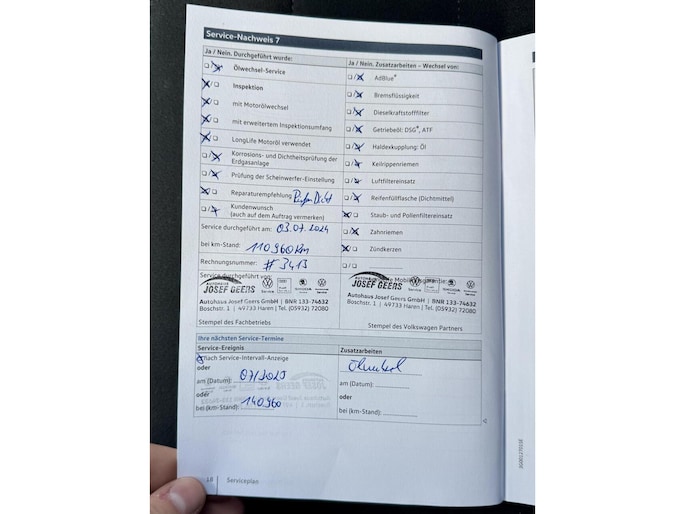 Service-Nachweis 7
Ja / Nein. Durchgeführt wurde:
Ölwechsel-Service
Inspektion
mit Motorölwechsel
mit erweitertem Inspektionsumfang
LongLife Motoröl verwendet
Korrosions- und Dichtheitsprüfung der
Erdgasanlage
Prüfung der Scheinwerfer-Einstellung
Reparaturempfehlung
Kundenwunsch
(auch auf dem Auftrag vermerken)
Service durchgeführt am: 03.07.2024
bei km-Stand: 110960 km
Rechnungsnummer: # 3413
Service durchgeführt von:
AUTOHAUS
JOSEF GEERS
Service
SKODA
Service
Autohaus Josef Geers GmbH | BNR 133-74632
Boschstr. 1 | 49733 Haren | Tel. (05932) 72080
Stempel des Fachbetriebs
Ja / Nein. Zusatzarbeiten – Wechsel von:
AdBlue®
Bremsflüssigkeit
Dieselkraftstofffilter
Getriebeöl: DSG®, ATF
Haldexkupplung: Öl
Keilrippenriemen
Luftfiltereinsatz
Reifenfüllflasche (Dichtmittel)
Staub- und Pollenfiltereinsatz
Zahnriemen
Zündkerzen
AUTOHAUS
JOSEF GEERS
Service
SKODA
Service
Autohaus Josef Geers GmbH | BNR 133-74632
Boschstr. 1 | 49733 Haren | Tel. (05932) 72080
Stempel des Volkswagen Partners
Ihre nächsten Service-Termine
Service-Ereignis
nach Service-Intervall-Anzeige
oder
am (Datum): 07/2025
oder
bei (km-Stand): 140960
Zusatzarbeiten
oder
am (Datum):
oder
bei (km-Stand):
18
Serviceplan